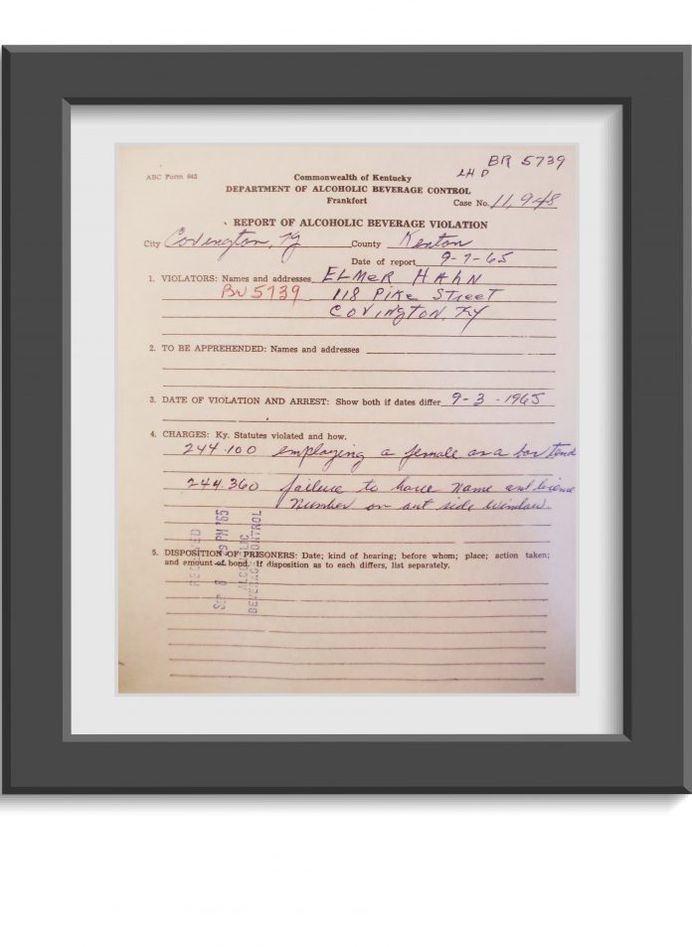 BR 5739
LHD
ABC Form 642
Commonwealth of Kentucky
DEPARTMENT OF ALCOHOLIC BEVERAGE CONTROL
Frankfort
Case No. 11,948
REPORT OF ALCOHOLIC BEVERAGE VIOLATION
City Covington, Ky County Kenton
Date of report 9-7-65
1. VIOLATORS: Names and addresses ELMER HAHN
BW 5739 118 PIKE STREET
COVINGTON, KY
2. TO BE APPREHENDED: Names and addresses
3. DATE OF VIOLATION AND ARREST: Show both if dates differ 9-3-1965
4. CHARGES: Ky. Statutes violated and how.
244.100 employing a female as a bar tend
244.360 failure to have name and license
Number on out side window.
5. DISPOSITION OF PRISONERS: Date; kind of hearing; before whom; place; action taken;
and amount of bond. If disposition as to each differs, list separately.
RECEIVED
SEP 8 PM '65
ALCOHOLIC
BEVERAGE CONTROL